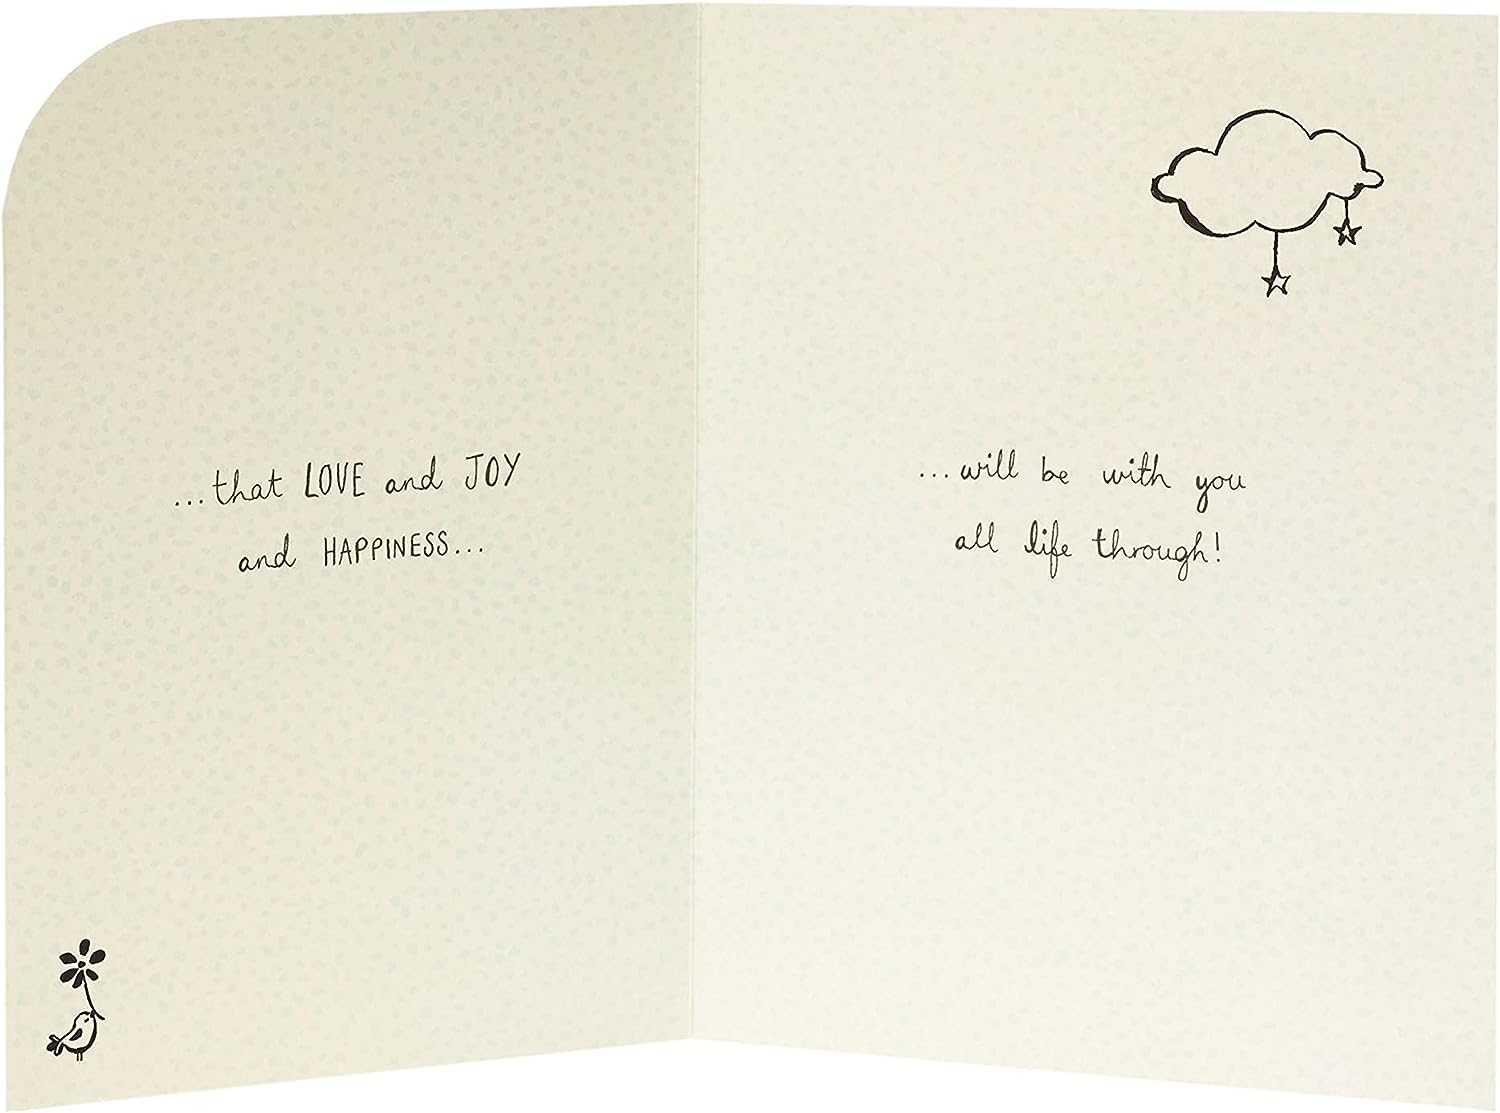 ...that LOVE and JOY
and HAPPINESS...
...will be with you
all life through!